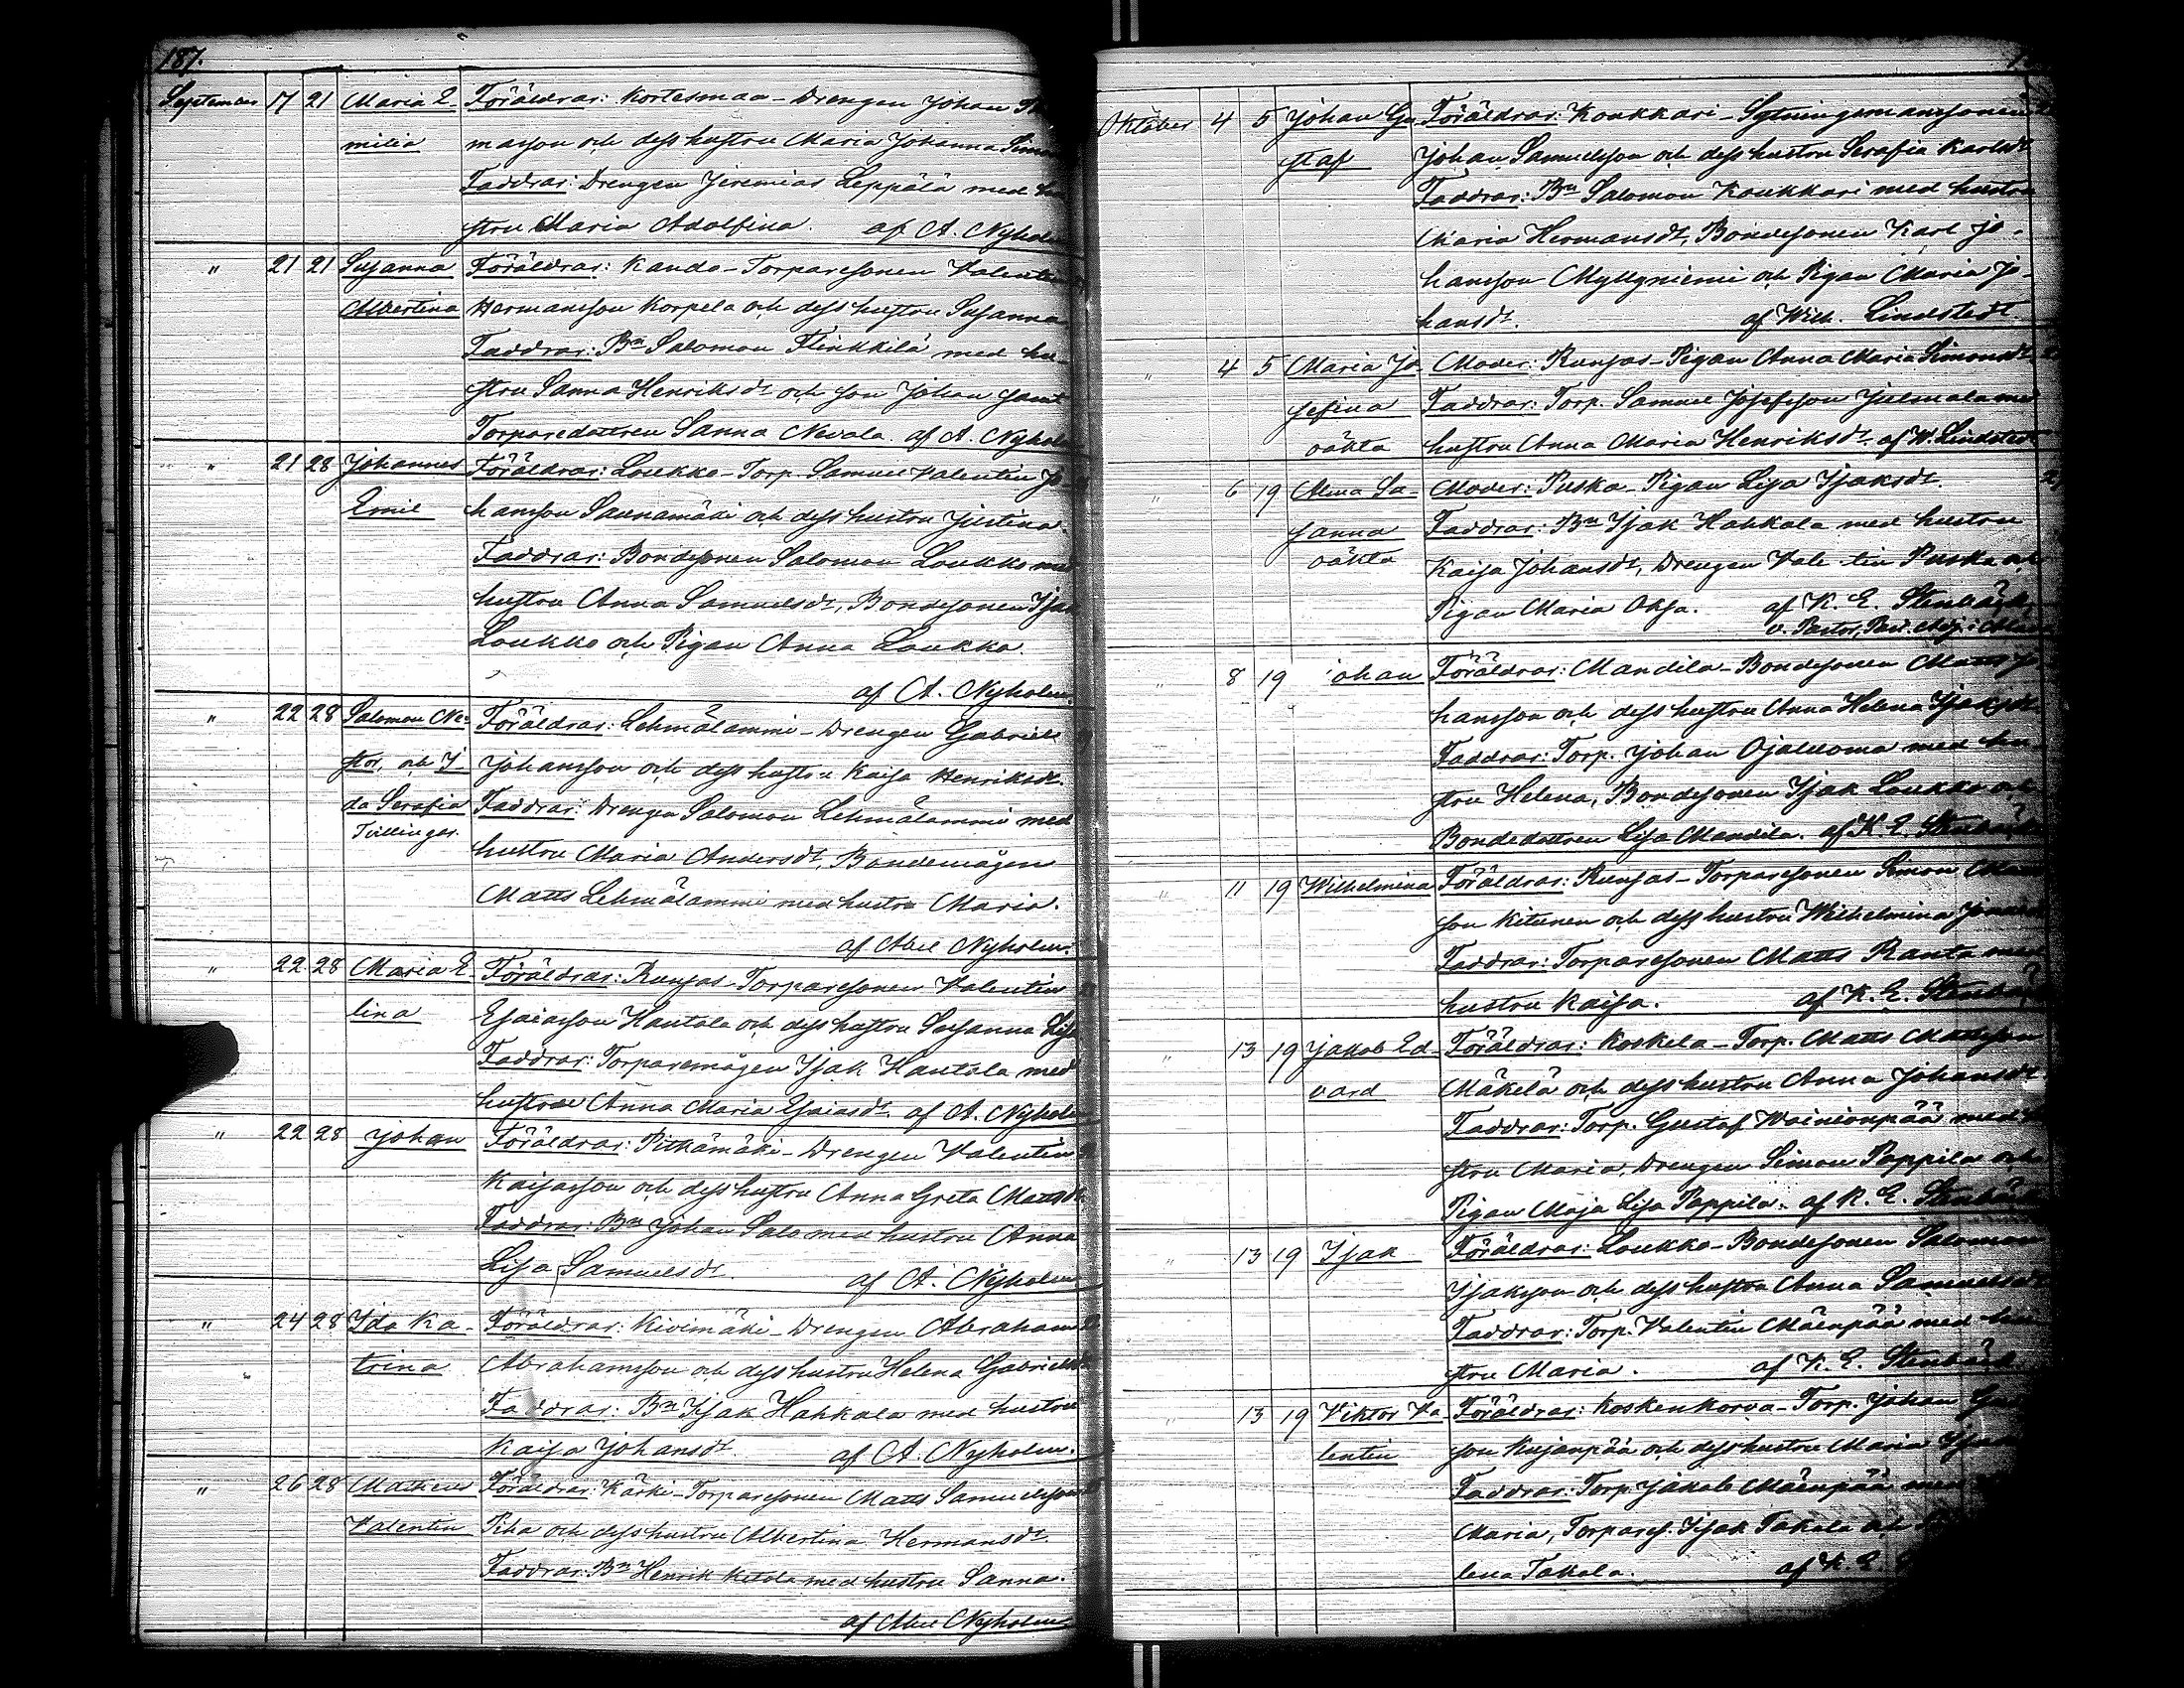 187.
September 17 21 Maria E- Föräldrar: Kortesmaa - Drengen Johan
milia masson och dess hustru Maria Johanna
Faddrar: Drengen Jeremias Leppälä med hu-
stru Maria Adolfina. af A. Nyholm
" 21 21 Susanna Föräldrar: Kanda - Torparesonen Valentin
Albertina Hermansson Korpela och dess hustru Susanna
Faddrar: Bn Salomon Flinkkilä med hu-
stru Sanna Henriksdr och son Johan samt
Torparedottren Sanna Nevala. af A. Nyholm
" 21 28 Johannes Föräldrar: Loukko - Torp. Samuel Valentin Jo-
Emil hansson Saunamäki och dess hustru Justina.
Faddrar: Bondesonen Salomon Loukko med
hustru Anna Samuelsdr, Bondesonen Isak
Loukko och Pigan Anna Loukko.
af A. Nyholm.
" 22 28 Salomon Ne- Föräldrar: Lehmälammi - Drengen Gabriel
stor, och I- Johansson och dess hustru Kaisa Henriksdr.
da Serafia Faddrar: Drengen Salomon Lehmälammi med
Tvillingar. hustru Maria Andersdr, Bondemågen
Matts Lehmälammi med hustru Maria.
af Abel Nyholm.
" 22 28 Maria E- Föräldrar: Runsas - Torparesonen Valentin
lina Esaiasson Hautala och dess hustru Susanna
Faddrar: Torparemågen Isak Hautala med
hustru Anna Maria Esaiasdr. af A. Nyholm
" 22 28 Johan Föräldrar: Pitkämäki - Drengen Valentin
Kaisasson och dess hustru Anna Greta Mattsdr.
Faddrar: Bn Johan Salo med hustru Anna
Lisa Samuelsdr. af A. Nyholm
" 24 28 Ida Ka- Föräldrar: Kivimäki - Drengen Abraham
trina Abrahamsson och dess hustru Helena Gabrielsdr
Faddrar: Bn Isak Hahkala med hustru
Kaisa Johansdr. af A. Nyholm.
" 26 28 Matheus Föräldrar: Kärki - Torparesonen Matts Samuelsson
Valentin Piha och dess hustru Albertina Hermansdr.
Faddrar: Bn Henrik Ketola med hustru Sanna.
af Abel Nyholm.
Oktober 4 5 Johan Gu- Föräldrar: Koukkari - Sytningsmanssonen
staf Johan Samuelsson och dess hustru Serafia Karlsdr
Faddrar: Bn Salomon Koukkari med hustru
Maria Hermansdr, Bondesonen Karl Jo-
hansson Myllyniemi och Pigan Maria Jo-
hansdr. af Wilh. Lindstedt.
" 4 5 Maria Jo- Moder: Runsas - Pigan Anna Maria Simonsdr
sefina Faddrar: Torp. Samuel Josefsson Jalmala med
oäkta hustru Anna Maria Henriksdr. af W. Lindstedt
" 6 19 Alma Su- Moder: Puska - Pigan Lisa Isaksdr.
sanna Faddrar: Bn Isak Hahkala med hustru
oäkta Kaisa Johansdr, Drengen Valentin Puska och
Pigan Maria Oksa. af K. E. Stenbäck,
v. Pastor,
" 8 19 Johan Föräldrar: Mandila - Bondesonen Matts Jo-
hansson och dess hustru Anna Helena Isaksdr
Faddrar: Torp. Johan Ojaluoma med hu-
stru Helena, Bondesonen Isak Loukko och
Bondedottren Lisa Mandila. af K. E. Stenbäck
" 11 19 Wilhelmina Föräldrar: Runsas - Torparesonen Simon
son Kitunen och dess hustru Wilhelmina
Faddrar: Torparesonen Matts Ranta med
hustru Kaisa. af K. E. Stenbäck
" 13 19 Jakob Ed- Föräldrar: Koskela - Torp. Matts Mattsson
vard Mäkelä och dess hustru Anna Johansdr
Faddrar: Torp. Gustaf Wainionpää med hu-
stru Maria, Drengen Simon Pappila och
Pigan Maja Lisa Pappila. af K. E. Stenbäck
" 13 19 Isak Föräldrar: Loukko - Bondesonen Salomon
Isaksson och dess hustru Anna Samuelsdr
Faddrar: Torp. Valentin Mäenpää med hu-
stru Maria. af K. E. Stenbäck
" 13 19 Viktor Va- Föräldrar: Koskenkorva - Torp. Johan
lentin son Kujanpää och dess hustru Maria
Faddrar: Torp. Jakob Mäenpää med
Maria, Torpares. Isak Takala och
lena Takala. af K. E.